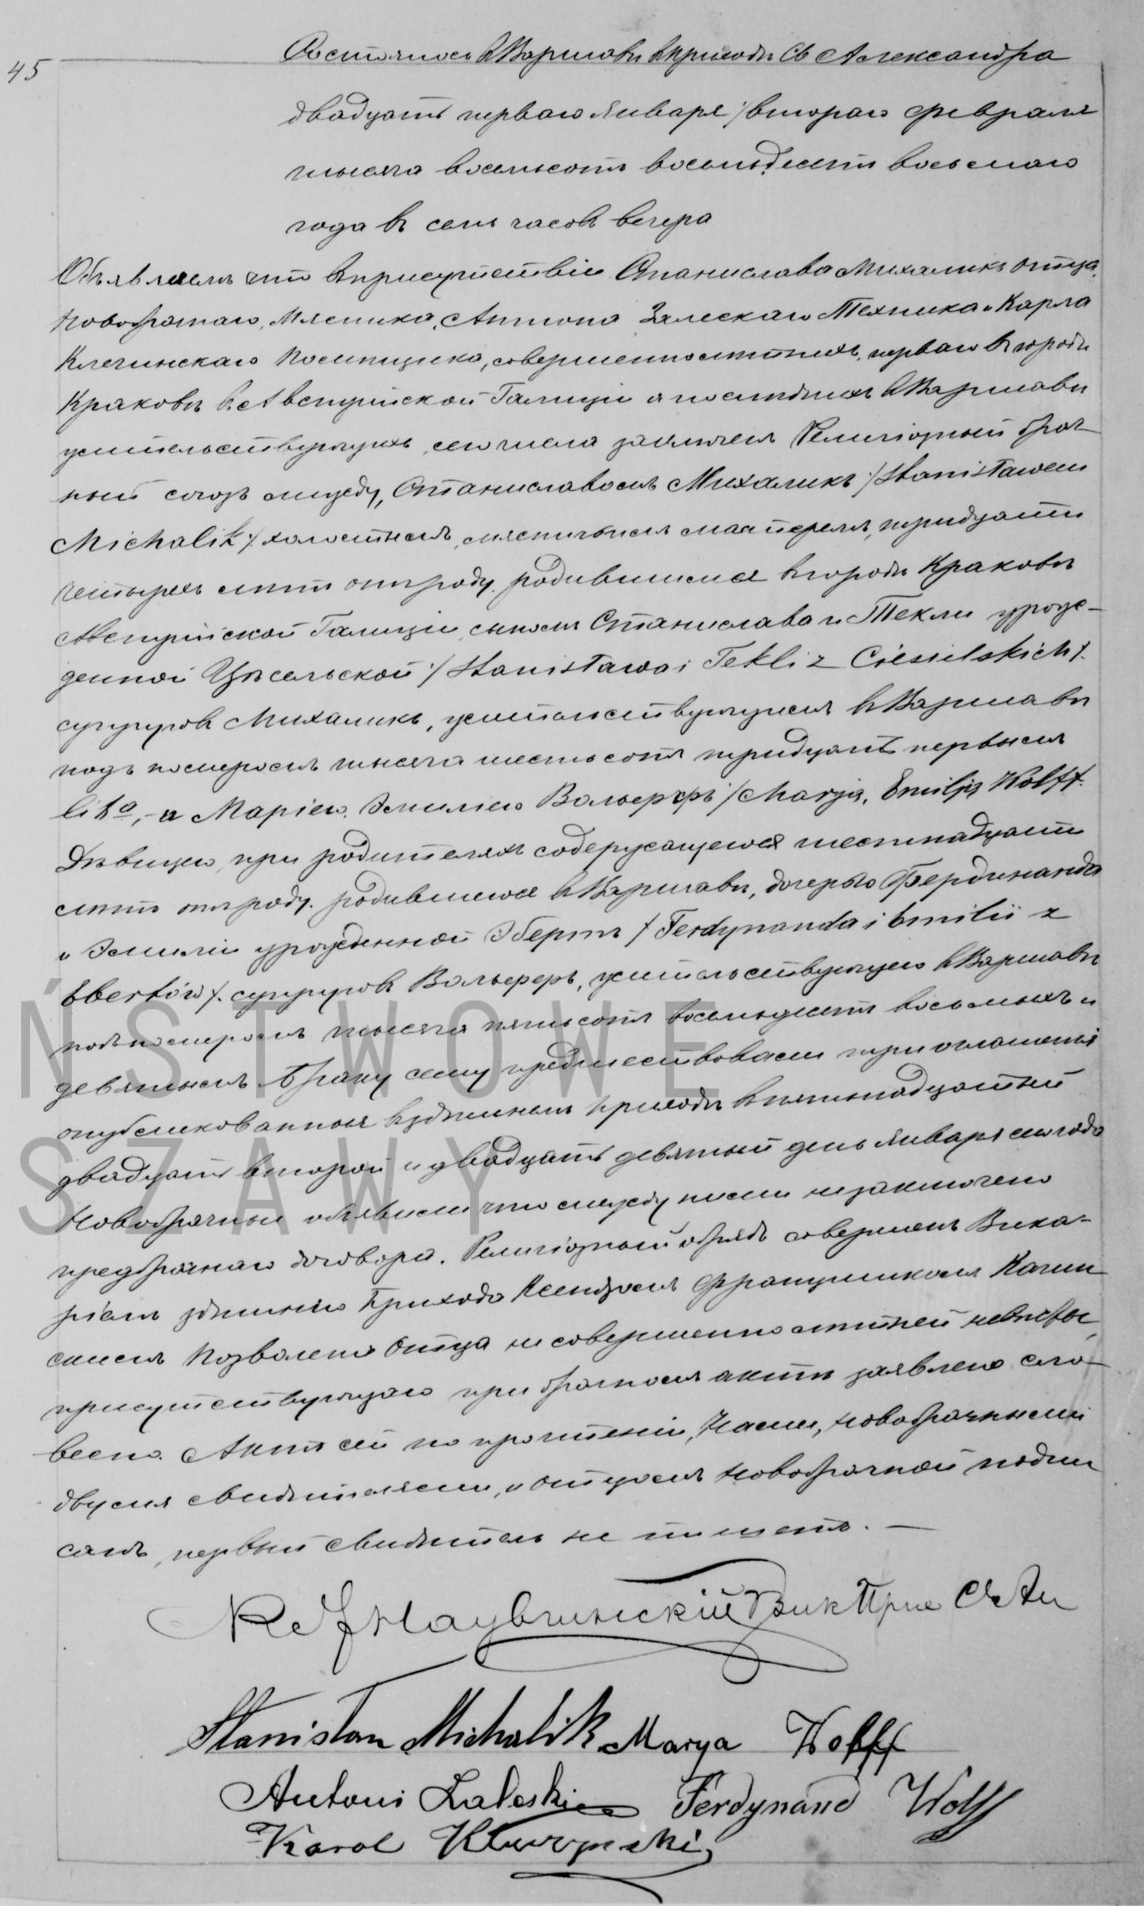 45
Состоялось въ Варшавѣ въ приходѣ Св Александра
двадцать перваго Января /втораго февраля
тысяча восемьсотъ восемьдесятъ восьмаго
года въ семь часовъ вечера
Объявляемъ что въ присутствіи Станислава Михаликъ отца
новобрачнаго, Мясника, Антона Залескаго Техника и Карла
Клечинскаго Помощника, совершеннолѣтнихъ, перваго въ городѣ
Краковѣ въ Австрійской Галиціи а послѣднихъ въ Варшавѣ
жительствующихъ, сего числа заключенъ Религіозный брач-
ный союзъ между, Станиславомъ Михаликъ /Stanisławem
Michalik/ холостымъ, мясничьимъ мастеромъ, тридцати
четырехъ лѣтъ отъ роду, родившимся въ городѣ Краковѣ
Австрійской Галиціи, сыномъ Станислава и Текли урож-
денной Цѣсельской /Stanisława i Tekli z Ciesielskich/.
супруговъ Михаликъ, жительствующимъ въ Варшавѣ
подъ номеромъ тысяча шестьсотъ тридцать первымъ
lit a, - и Маріею, Эмиліею Вольффъ /Marją, Emilją Wolff.
Дѣвицею, при родителяхъ содержащеюся шестнадцати
лѣтъ отъ роду, родившеюся въ Варшавѣ, дочерью Фердинанда
и Эмиліи урожденной Эбертъ / Ferdynanda i Emilii z
Ebertów/. супруговъ Вольффъ, жительствующею въ Варшавѣ
подъ номеромъ тысяча пятьсотъ восемьдесятъ восьмымъ и
девятымъ Браку сему предшествовали три оглашенія
опубликованныя въ здѣшнемъ приходѣ въ пятнадцатый
двадцать второй и двадцать девятый день Января сего года
Новобрачные объявили что между ними не заключено
предбрачнаго договора. Религіозный обрядъ совершенъ Вика-
ріемъ здѣшняго Прихода Ксендзомъ Францишкомъ
Позволеніе Отца несовершеннолѣтней невѣсты,
присутствующаго при брачномъ актѣ заявлено сло-
весно. Актъ сей по прочтеніи, Нами, новобрачными
двумя свидѣтелями, и отцомъ новобрачной подпи
санъ, первый свидѣтель не пишетъ. —
Вик При Св Ал
Stanisław Michalik Marya Wolff
Antoni Zaleski Ferdynand Wolff
Karol
ŃSTWOWE
SZAWY